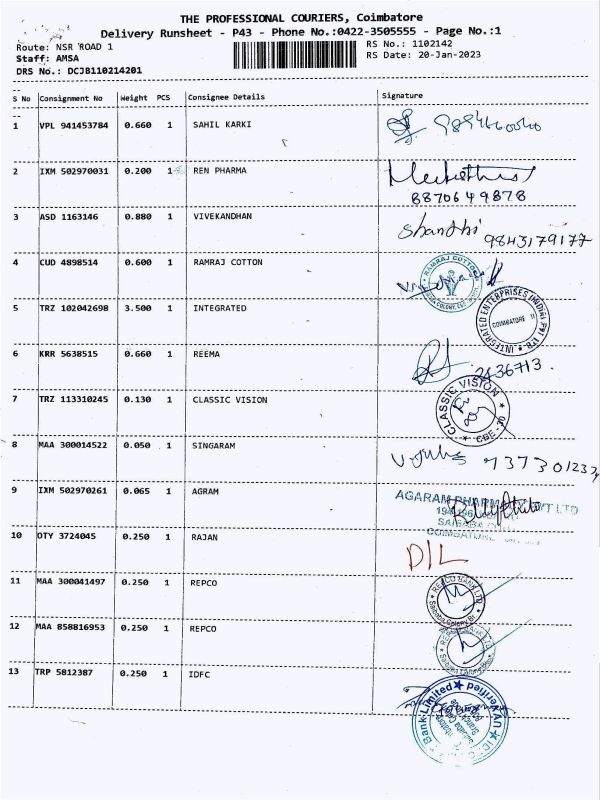 THE PROFESSIONAL COURIERS, Coimbatore
Delivery Runsheet - P43 - Phone No.:0422-3505555 - Page No.:1
Route: NSR ROAD 1
RS No.: 1102142
Staff: AMSA
RS Date: 20-Jan-2023
DRS No.: DCJB110214201
S No Consignment No Weight PCS Consignee Details Signature
1 VPL 941453784 0.660 1 SAHIL KARKI
2 IXM 502970031 0.200 1 REN PHARMA
8870649878
3 ASD 1163146 0.880 1 VIVEKANDHAN Shandhi
9843179177
4 CUD 4898514 0.600 1 RAMRAJ COTTON RAMRAJ COTTON
5 TRZ 102042698 3.500 1 INTEGRATED INTEGRATED ENTERPRISES (INDIA) PVT LTD.
COIMBATORE
6 KRR 5638515 0.660 1 REEMA 2436713.
7 TRZ 113310245 0.130 1 CLASSIC VISION CLASSIC VISION
CBE - 30
8 MAA 300014522 0.050 1 SINGARAM
9 IXM 502970261 0.065 1 AGRAM AGARAM PHARMACY PVT LTD
SAIBABA
COIMBATORE
10 OTY 3724045 0.250 1 RAJAN D/L
11 MAA 300041497 0.250 1 REPCO REPCO BANK LTD
Saibaba Colony Br
12 MAA 858816953 0.250 1 REPCO
13 TRP 5812387 0.250 1 IDFC Bank Limited